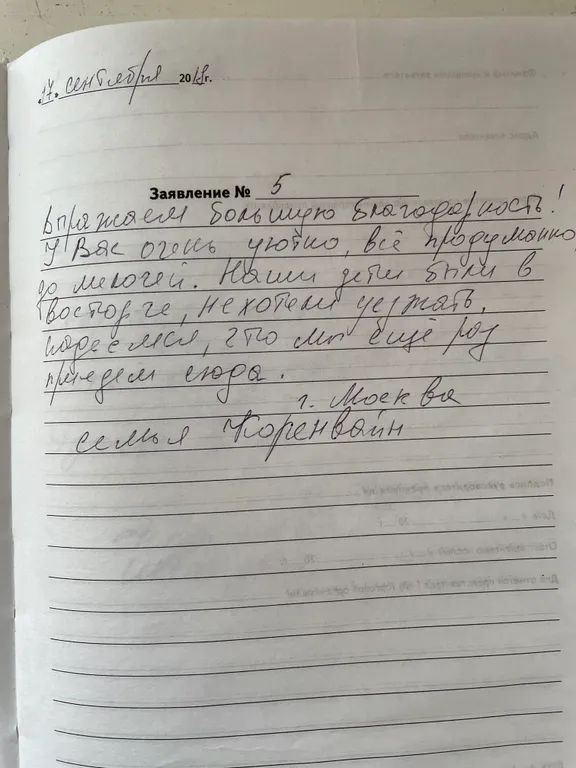 17. сентября 2019г.
Заявление № 5
Выражаем большую благодарность!
У Вас очень уютно, всё продуманно
до мелочей. Наши дети были в
восторге, не хотели уезжать.
Надеемся, что мы ещё раз
приедем сюда.
г. Москва
семья Коренвайн